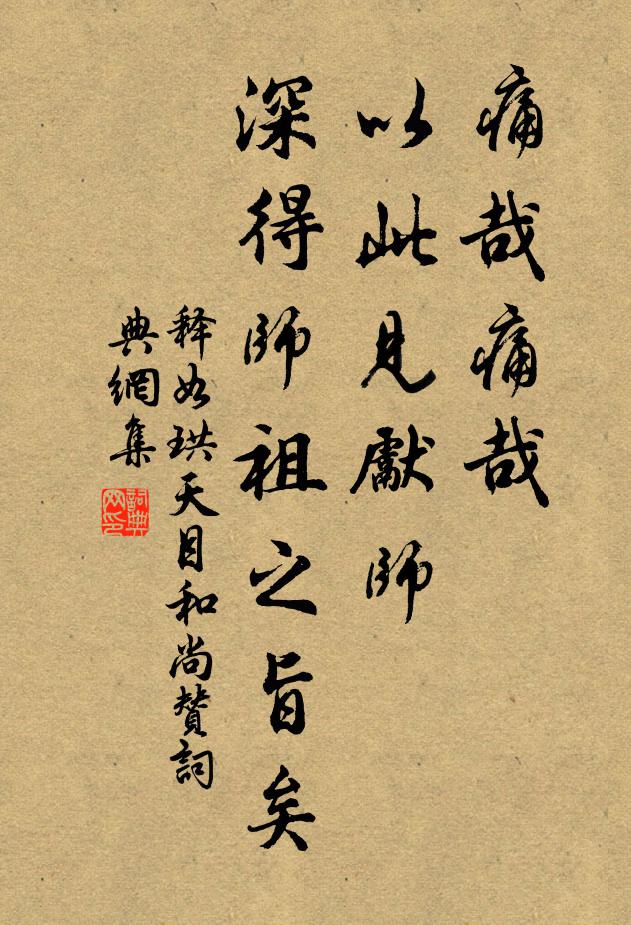 痛哉痛哉
以此見獻師
深得師祖之旨矣
释如珙天目和尚贊詞
典網集
詞典网印